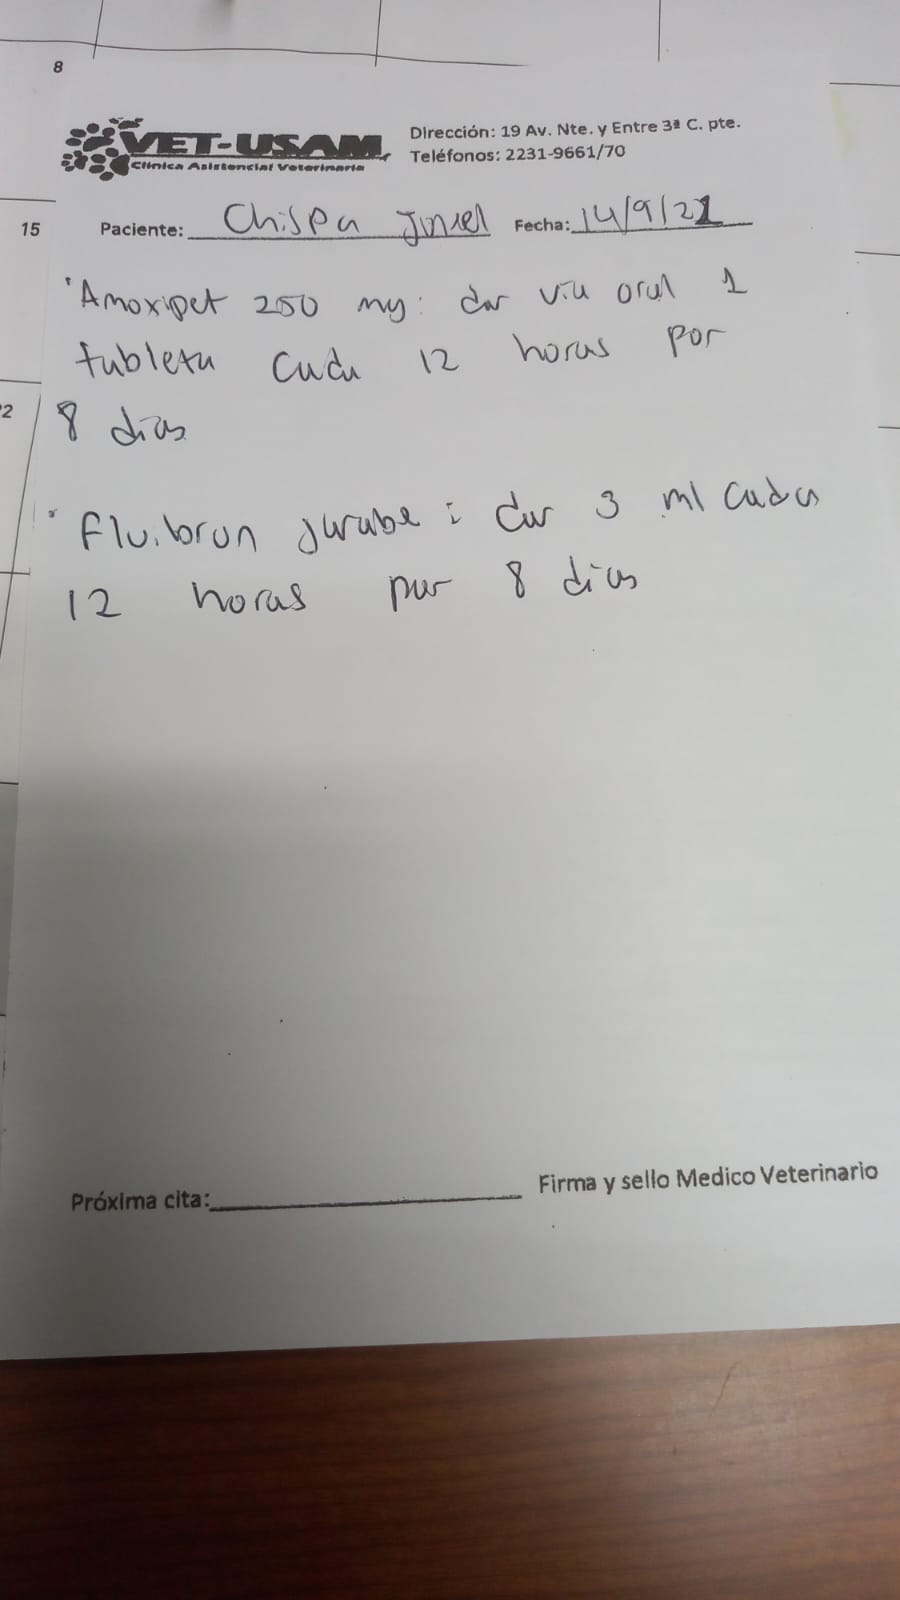 8
VET-USAM
Clínica Asistencial Veterinaria
Dirección: 19 Av. Nte. y Entre 3ª C. pte.
Teléfonos: 2231-9661/70
15
Paciente: Chispa Fecha: 14/9/21
Amoxipet 250 mg: dar via oral 1
tableta cada 12 horas por
2
8 dias
Fluibron jarabe: dar 3 ml cada
12 horas por 8 dias
Próxima cita:
Firma y sello Medico Veterinario